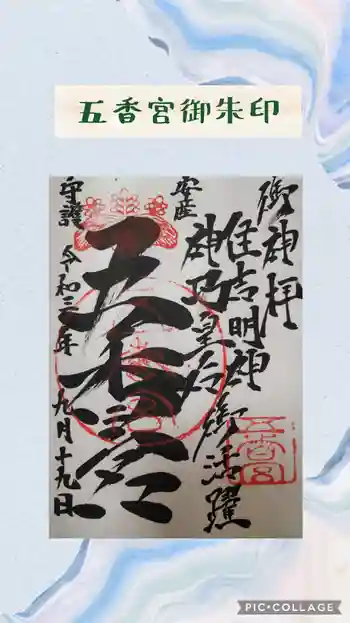 五香宮御朱印
御神拝
住吉明神
神功皇后
御活躍
安産
五香宮
守護
令和三年 九月十九日
五香宮
PIC•COLLAGE